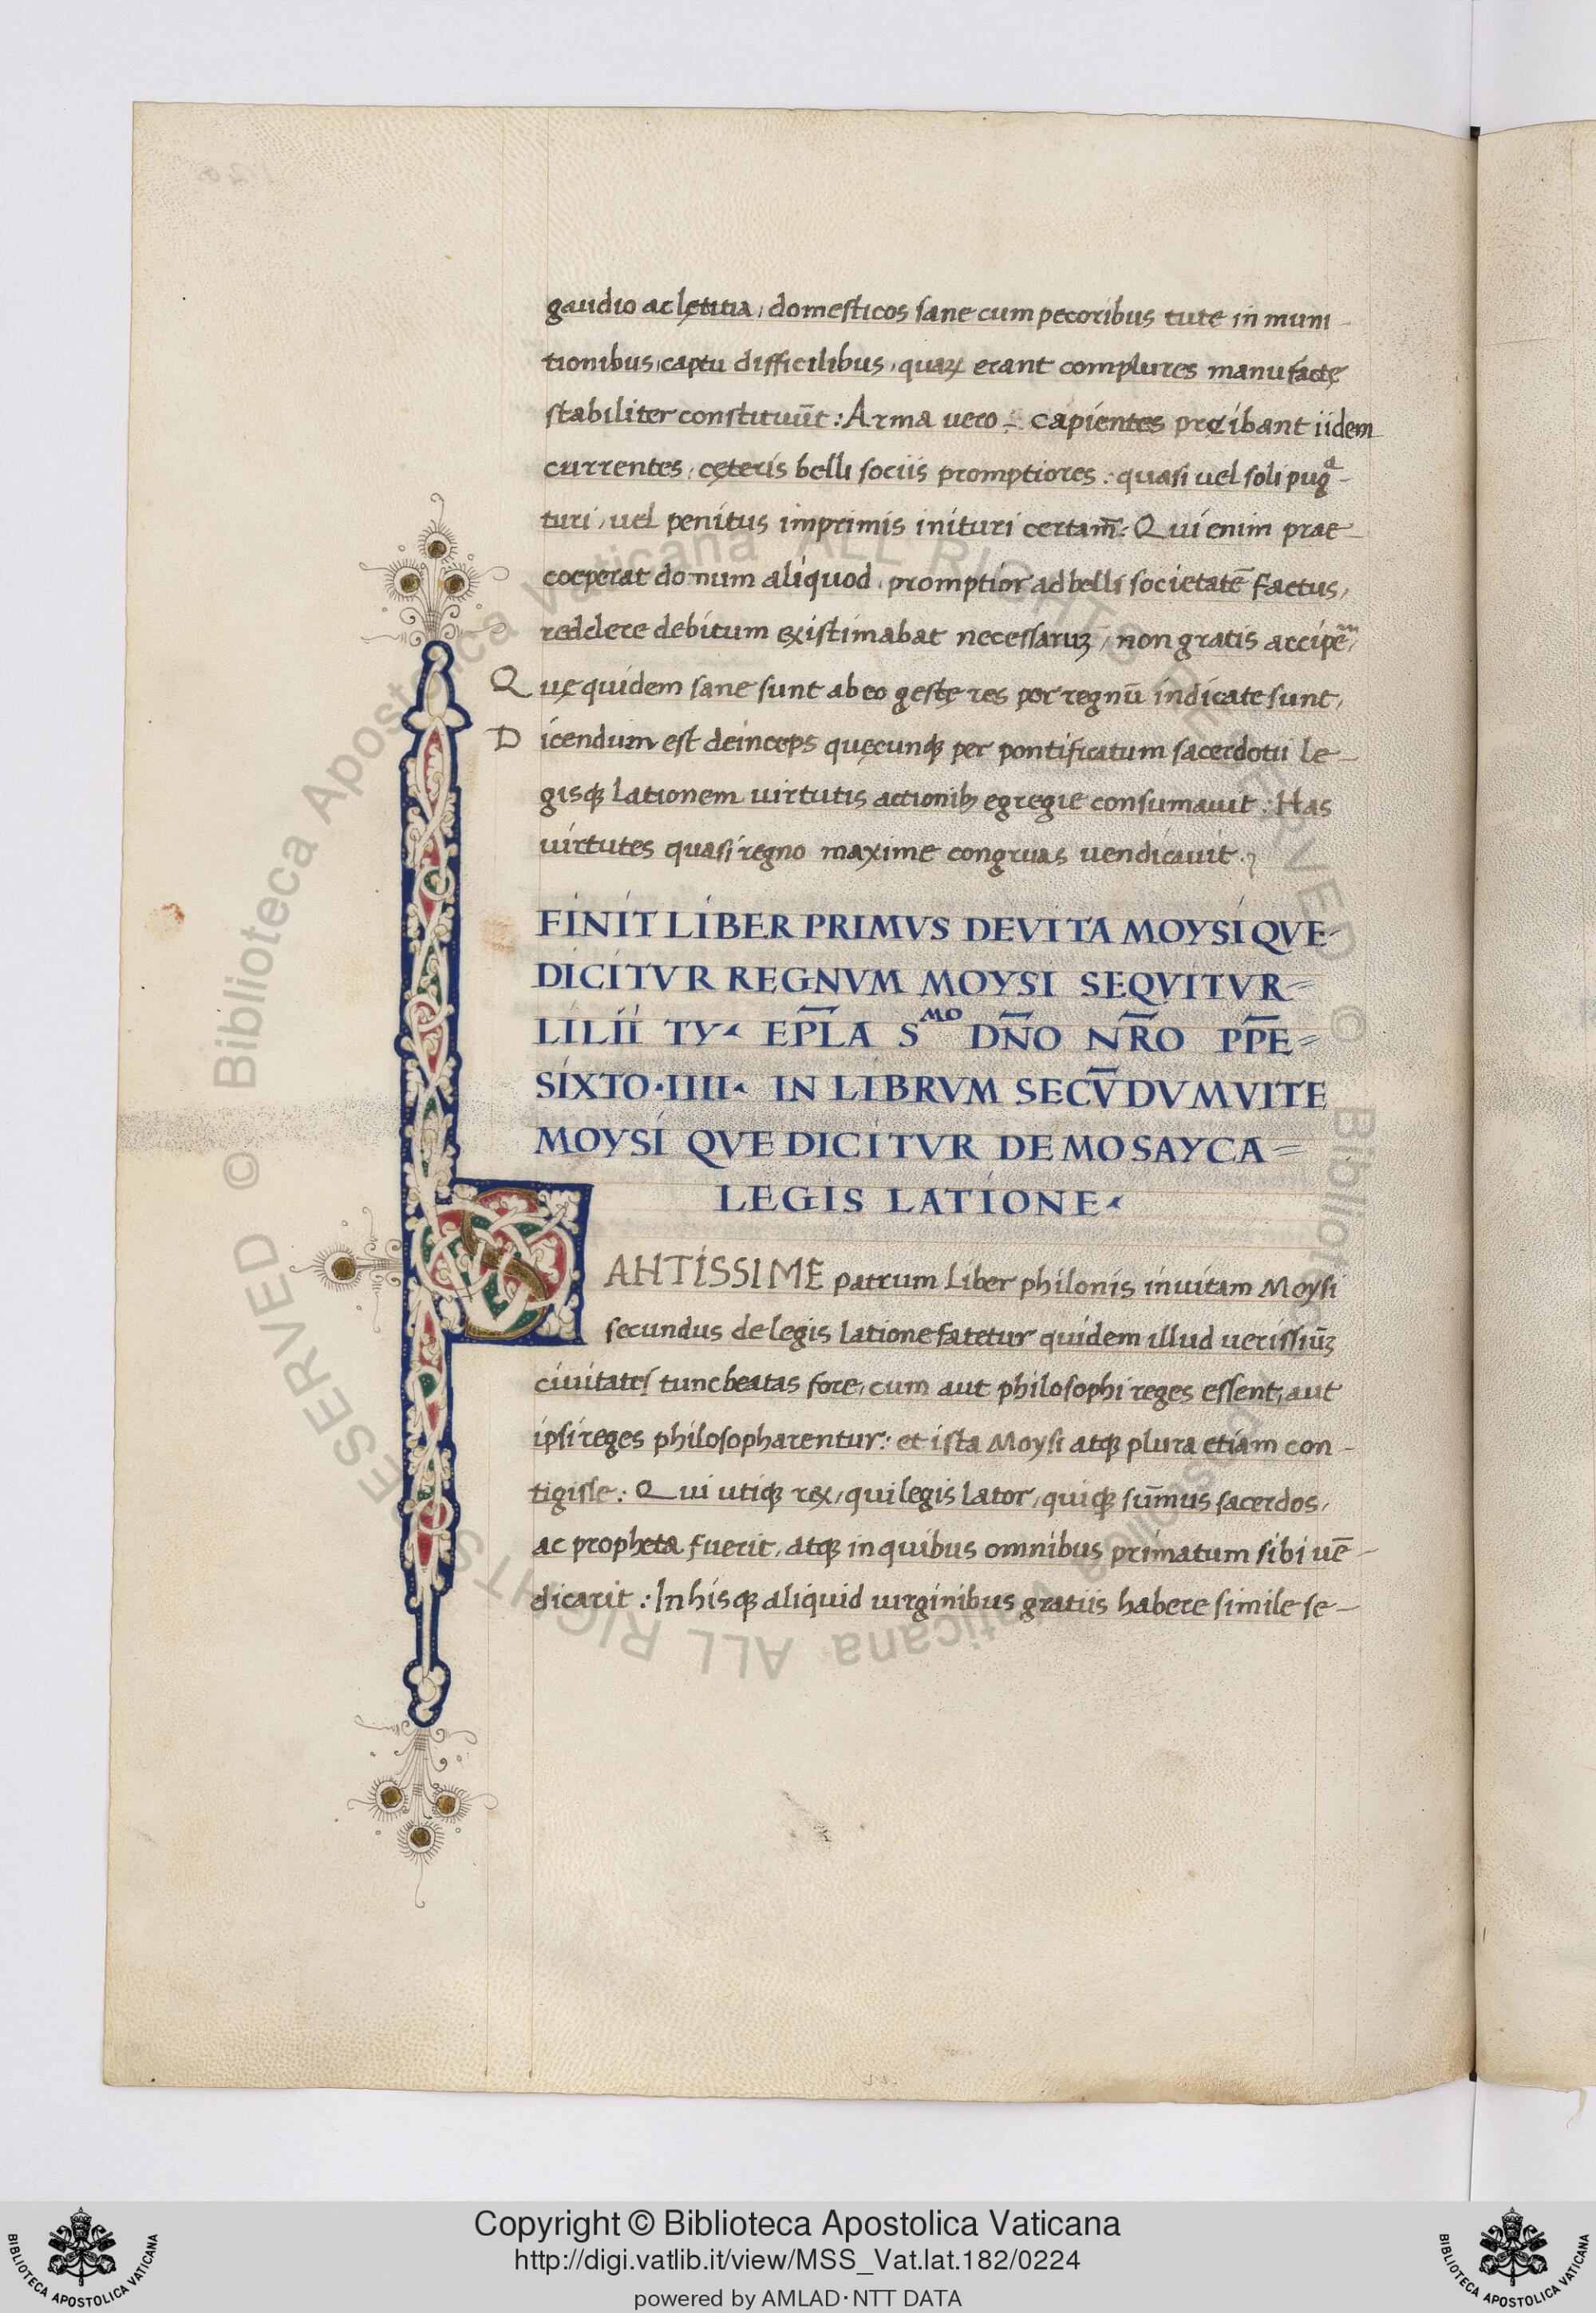 gaudio ac lętitia, domesticos sane cum pecoribus tute in muni-
tionibus, captu difficilibus, quaꝝ erant complures manufactę
stabiliter constituūt: Arma vero - capientes pręibant iidem
currentes, cęteris belli sociis promptiores: quasi vel soli pugᵃ-
turi, vel penitus imprimis inituri certam̄: Qui enim prae-
coeperat donum aliquod, promptior ad belli societatē factus,
reddere debitum existimabat necessariuꝫ, non gratis accipē,
Quę quidem sane sunt ab eo gestę res per regnū indicate sunt,
Dicendum est deinceps quęcunqꝫ per pontificatum sacerdotii le-
gisqꝫ lationem virtutis actionibꝫ egregie consumavit: Has
virtutes quasi regno maxime congruas vendicavit.
FINIT LIBER PRIMVS DEVITA MOYSI QVE-
DICITVR REGNVM MOYSI SEQVITVR=
LILII TY· EPL̄A Sᴹᴼ DN̄O NR̄O PP̄E=
SIXTO·IIII· IN LIBRVM SECV̄DVM VITE
MOYSI QVE DICITVR DE MOSAYCA=
LEGIS LATIONE·
SAHTISSIME patrum Liber philonis in vitam Moysi
secundus de legis latione fatetur quidem illud verissiūꝫ
civitates tunc beatas fore, cum aut philosophi reges essent, aut
ipsi reges philosopharentur: et ista Moysi atqꝫ plura etiam con-
tigisse: Qui utiqꝫ rex, qui legis lator, quiqꝫ sūmus sacerdos,
ac propheta fuerit, atqꝫ in quibus omnibus primatum sibi vē-
dicarit: In hisqꝫ aliquid virginibus gratiis habere simile se-
© Biblioteca Apostolica Vaticana ALL RIGHTS RESERVED © Biblioteca Apostolica Vaticana ALL RIGHTS RESERVED
Copyright © Biblioteca Apostolica Vaticana
http://digi.vatlib.it/view/MSS_Vat.lat.182/0224
powered by AMLAD·NTT DATA
BIBLIOTECA APOSTOLICA VATICANA
BIBLIOTECA APOSTOLICA VATICANA